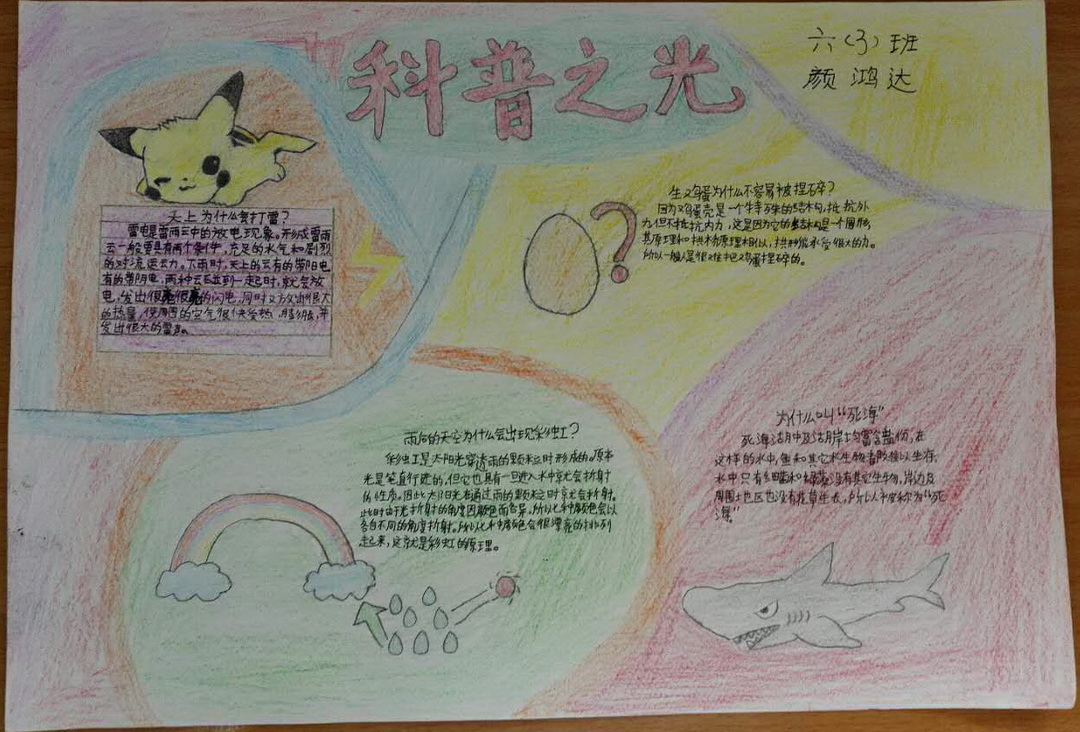 科普之光
六(3)班
颜鸿达
天上为什么会打雷?
雷电是雷雨云中的放电现象。形成雷雨
云一般要具有两个条件,充足的水气和剧烈
的对流运动。下雨时,天上的云有的带阳电
有的带阴电,两种云碰到一起时,就会放
电,发出很亮很亮的闪电,同时又放出很大
的热量,使周围的空气很快受热,膨胀,并
发出很大的雷声。
生鸡蛋为什么不容易被捏碎?
因为鸡蛋壳是一个特殊的结构,抵抗外
力,但不抵抗内力,这是因为它的结构是一个圆形,
其原理和拱桥原理相似,拱形能承受很大的力。
所以一般人是很难把鸡蛋捏碎的。
雨后的天空为什么会出现彩虹?
彩虹是太阳光穿透雨的颗粒时形成的。原本
光是笔直行进的,但它也具有一旦进入水中就会折射
的性质。因此太阳光在通过雨的颗粒之时就会折射。
此时由于光折射的角度因颜色而各异,所以七种颜色会以
各自不同的角度折射。所以七种颜色会很漂亮的排列
起来,这就是彩虹的原理。
为什么叫“死海”
死海湖中及湖岸均富含盐份,在
这样的水中,鱼和其它水生物都难以生存,
水中只有细菌和绿藻没有其它生物,岸边及
周围地区也没有花草生长,所以人们称为“死
海”